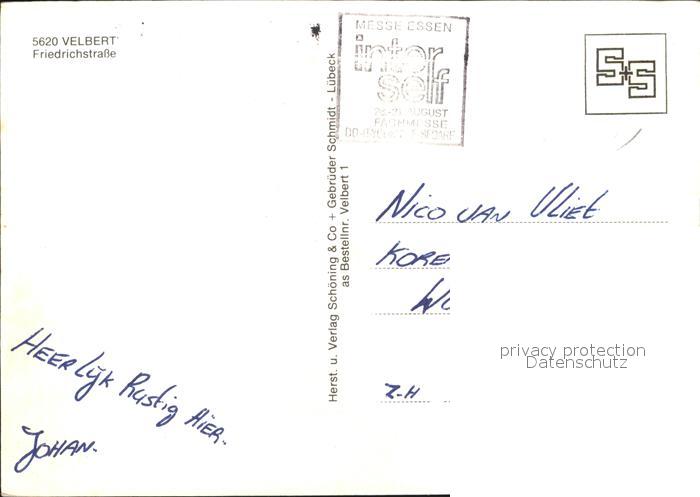 5620 VELBERT
Friedrichstraße
MESSE ESSEN
inter
self
AUGUST
FACHMESSE
S+S
Herst. u. Verlag Schöning & Co + Gebrüder Schmidt - Lübeck
as Bestellnr. Velbert 1
Nico van Vliet
KORE
Wo
Z-H
privacy protection
Datenschutz
HEERLijk Rustig HiER.
JOHAN.